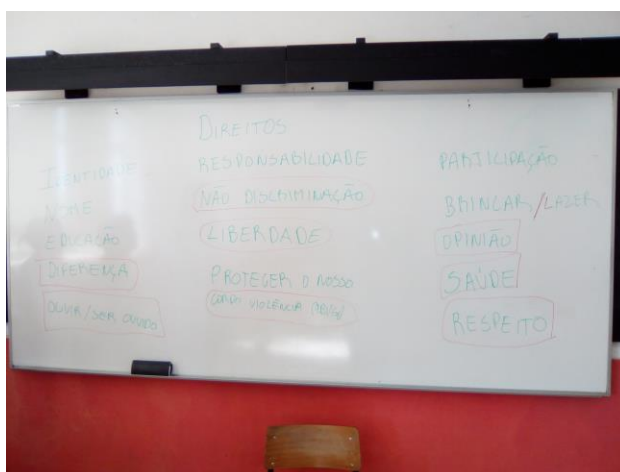 DIREITOS
IDENTIDADE
NOME
EDUCAÇÃO
DIFERENÇA
OUVIR/SER OUVIDO
RESPONSABILIDADE
NÃO DISCRIMINAÇÃO
LIBERDADE
PROTEGER O NOSSO
CORPO VIOLÊNCIA
PARTICIPAÇÃO
BRINCAR/LAZER
OPINIÃO
SAÚDE
RESPEITO